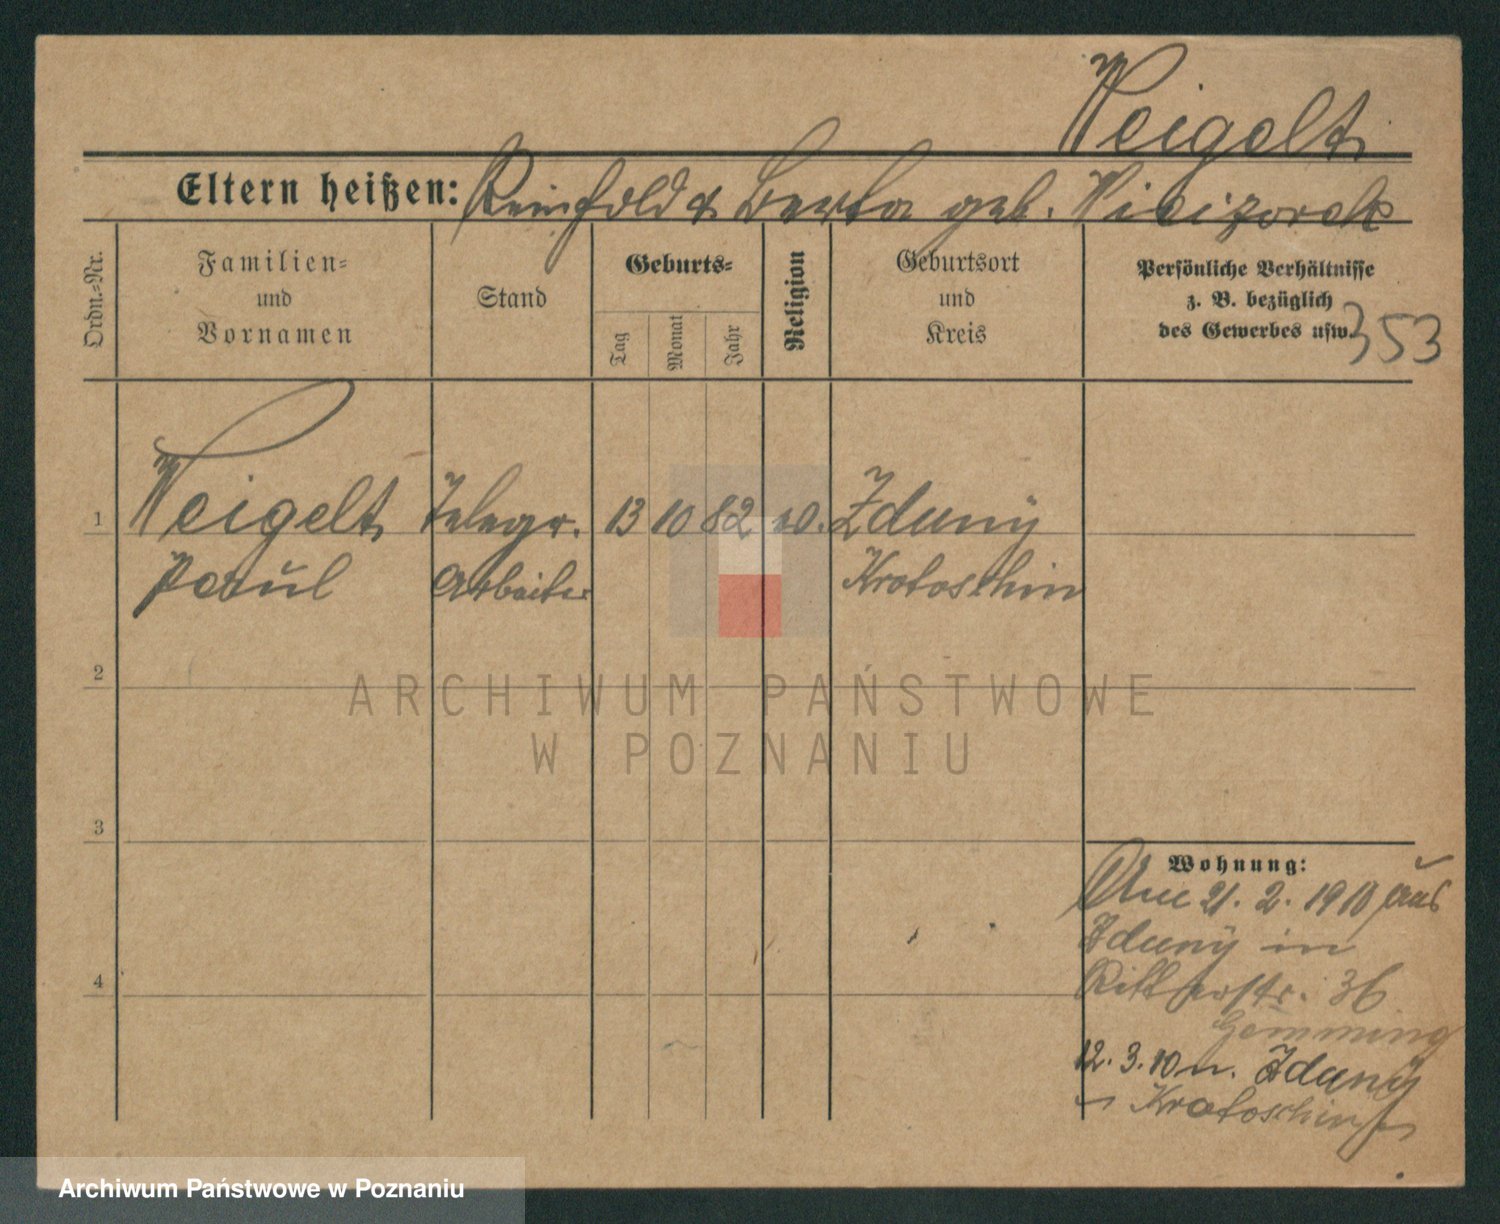 Weigelt
Eltern heißen: Reinhold & Berta geb. 
Ordn.-Nr.
Familien-
und
Vornamen
Stand
Geburts-
Tag
Monat
Jahr
Religion
Geburtsort
und
Kreis
Persönliche Verhältnisse
z. B. bezüglich
des Gewerbes usw.
353
1
Weigelt
Paul
Telegr.
Arbeiter
13
10
82
Zduny
Krotoschin
2
3
4
Wohnung:
21. 2. 1910 aus
Zduny in
Ritterstr. 36
12. 3. 10 n. Zduny
Krotoschin
ARCHIWUM PAŃSTWOWE
W POZNANIU
Archiwum Państwowe w Poznaniu